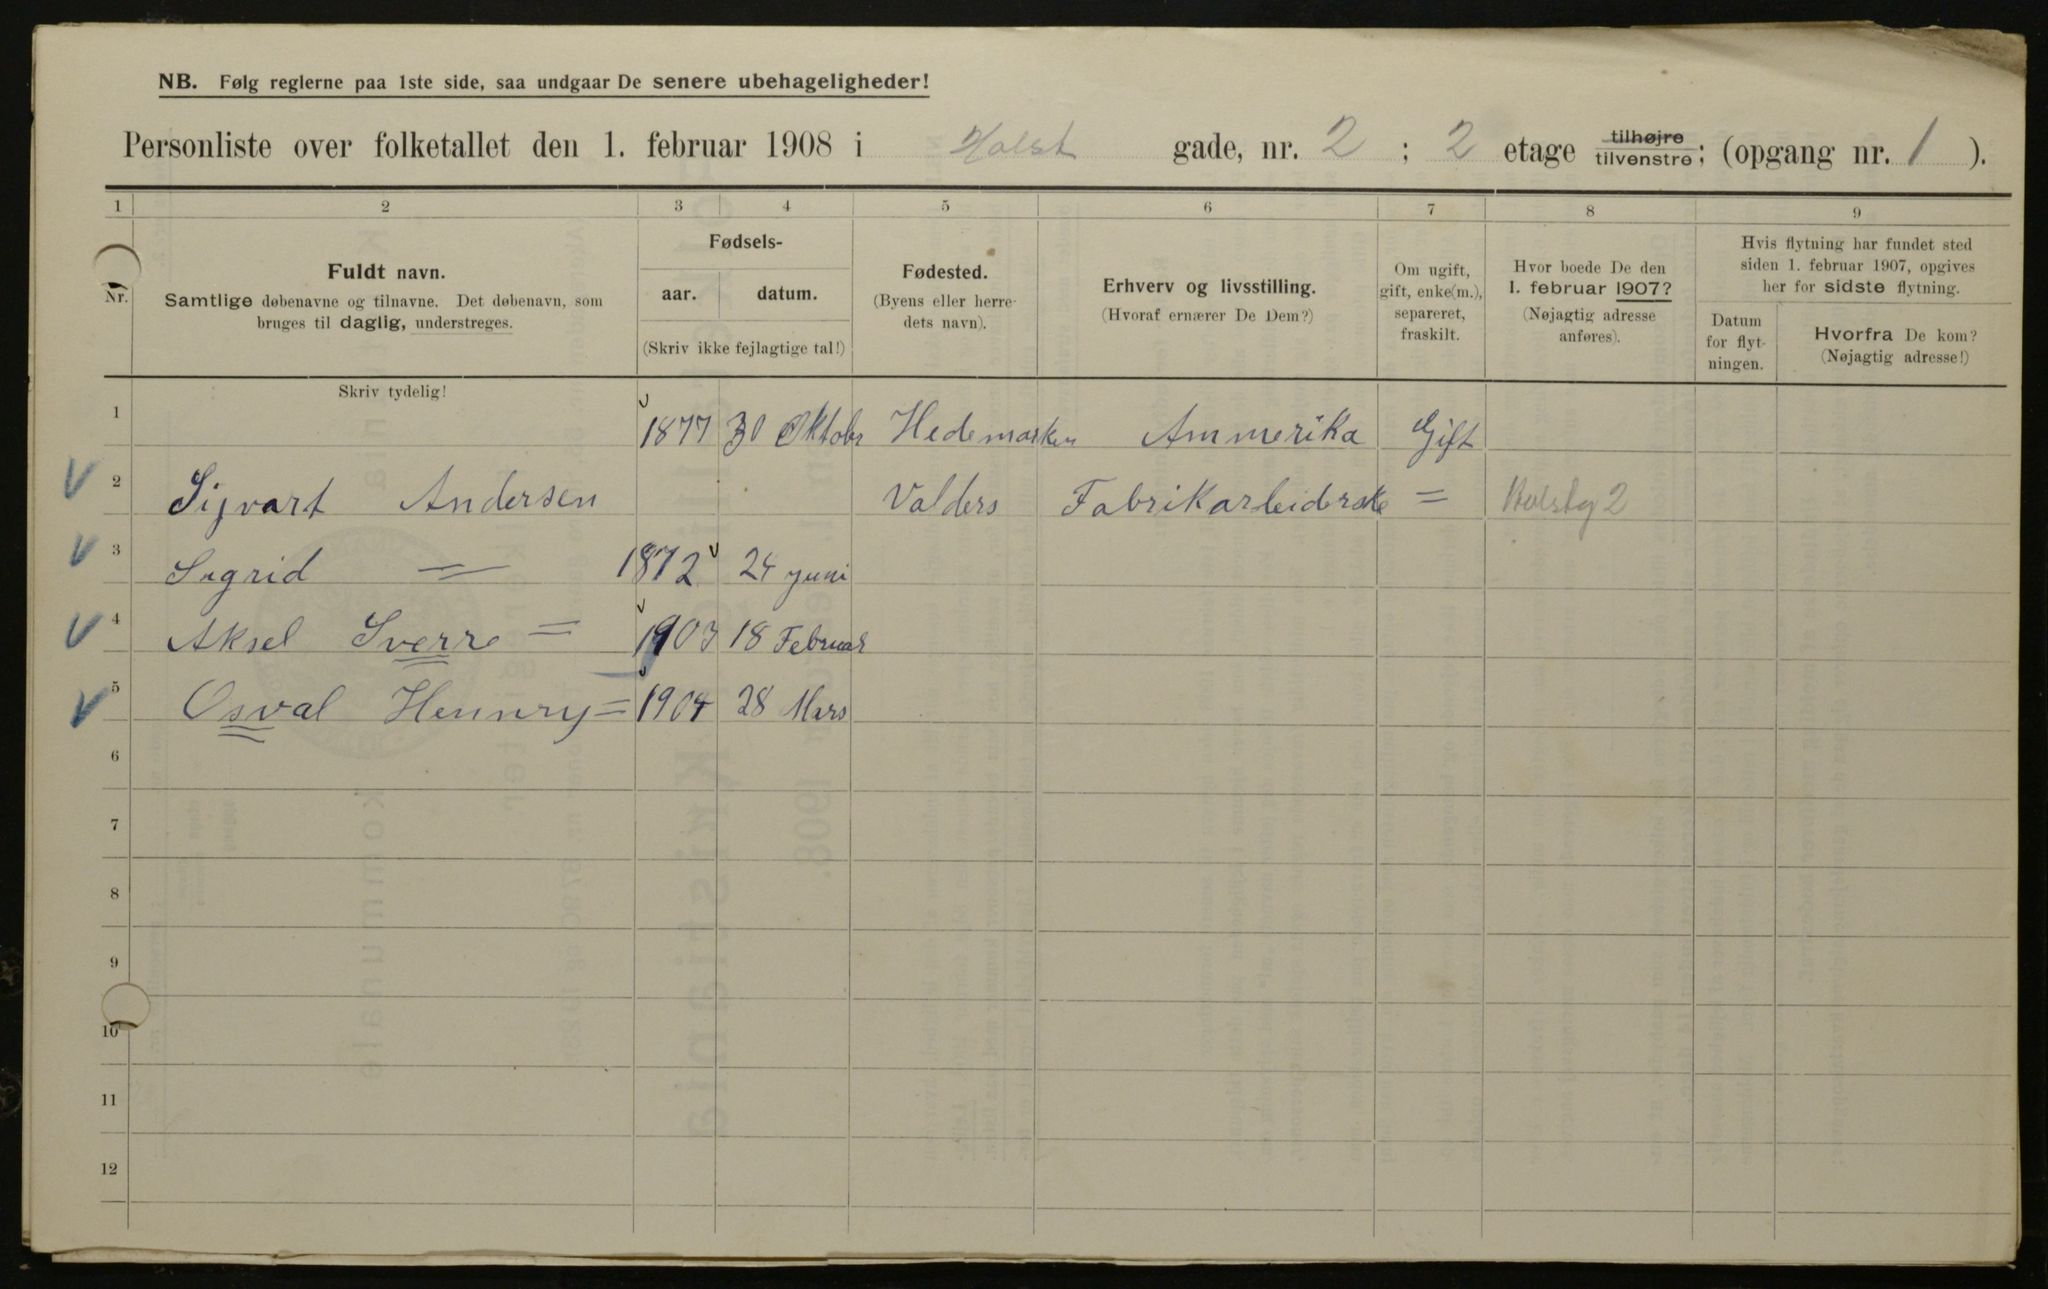 NB. Følg reglerne paa 1ste side, saa undgaar De senere ubehageligheder!
Personliste over folketallet den 1. februar 1908 i Holst gade, nr. 2 ; 2 etage tilhøjre tilvenstre; (opgang nr. 1 ).
1 2 3 4 5 6 7 8 9
Nr.
Fuldt navn.
Samtlige døbenavne og tilnavne. Det døbenavn, som
bruges til daglig, understreges.
Fødsels-
aar. datum.
(Skriv ikke fejlagtige tal!)
Fødested.
(Byens eller herre-
dets navn).
Erhverv og livsstilling.
(Hvoraf ernærer De Dem?)
Om ugift,
gift, enke(m.),
separeret,
fraskilt.
Hvor boede De den
1. februar 1907?
(Nøjagtig adresse
anføres).
Hvis flytning har fundet sted
siden 1. februar 1907, opgives
her for sidste flytning.
Datum
for flyt-
ningen.
Hvorfra De kom?
(Nøjagtig adresse!)
Skriv tydelig!
1 1877 30 Oktobr Hedemarken Ammerika Gift
2 Sigvart Andersen Valders Fabrikarbeiderske = Holstg 2
3 Sigrid = 1872 24 juni
4 Aksel Sverre = 1903 18 Februar
5 Osval Hennry = 1904 28 Mars
6
7
8
9
10
11
12